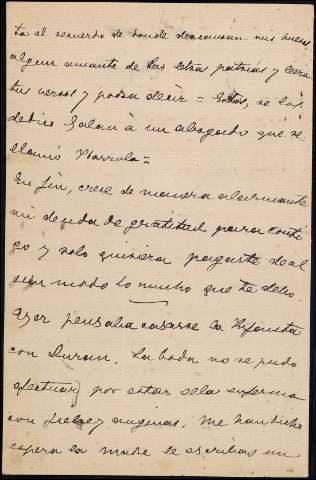 ta el recuerdo de donde descansan mis huesos
algun amante de las letras patrias y leera
tus versos y podra decir = Estos, se los
dedicó Galan á un abogado que se
llamó Ibarrola =
En fin, crece de manera alarmante
mi deuda de gratitud para conti
go y solo quisiera pagarte de al
gun modo lo mucho que te debo.
Ayer pensaba casarse la
con Duran. La boda no se pudo
efectuar por estar ella enferma
con fiebre y anginas. Me han dicho
espera la madre le escribas un